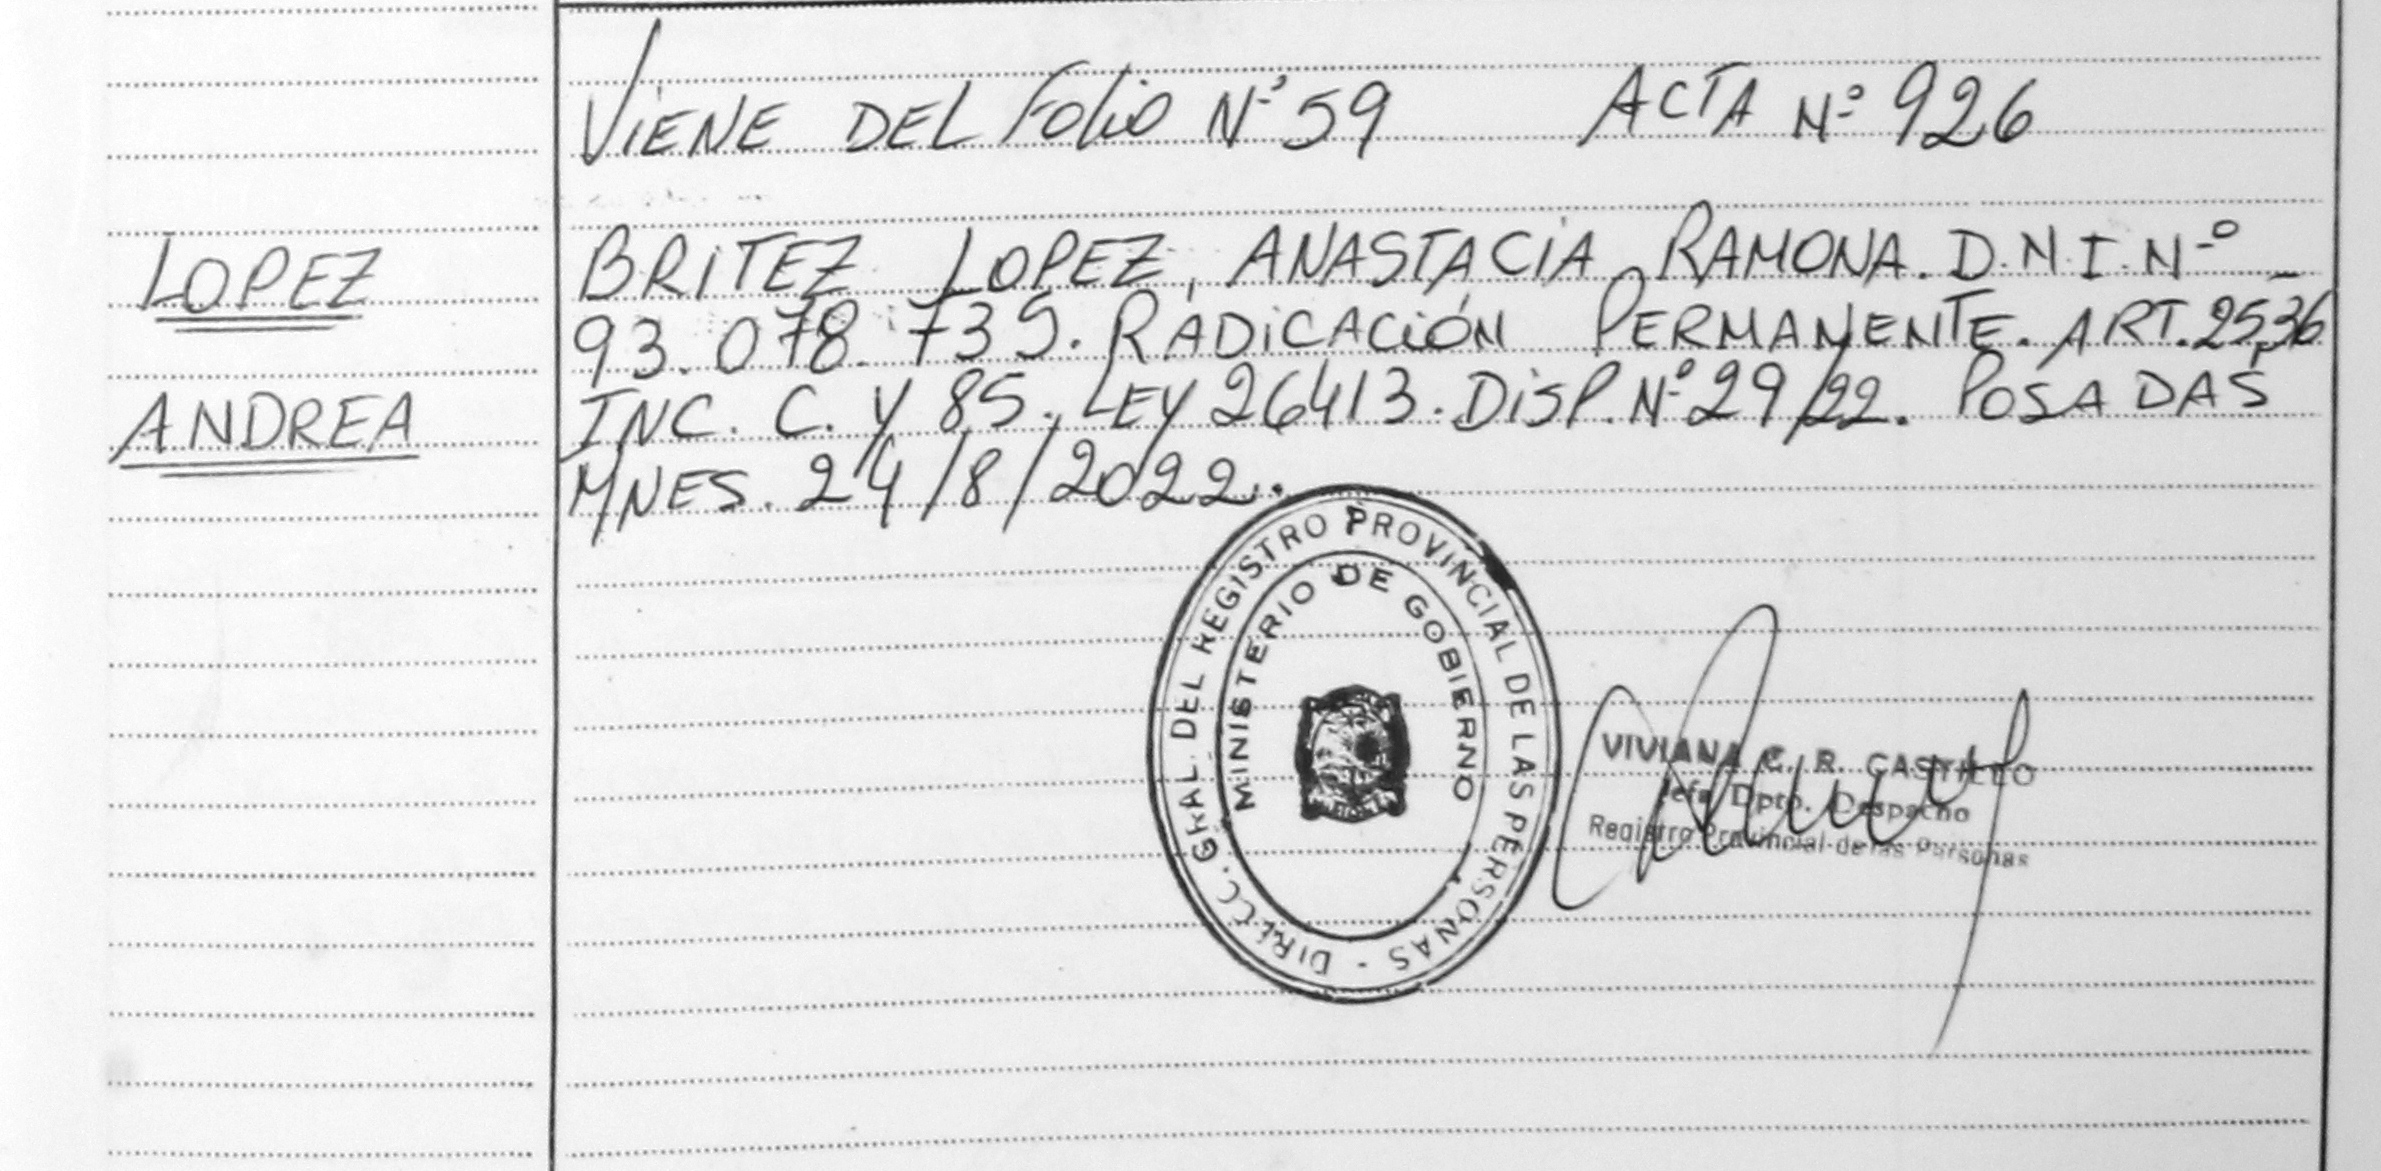 VIENE DEL FOLIO Nº 59 ACTA Nº 926
LOPEZ
ANDREA
BRITEZ LOPEZ, ANASTACIA RAMONA. D.N.I. Nº
93.078.739. RADICACIÓN PERMANENTE. ART. 25, 36
INC. C. Y 85. LEY 26413. DISP. Nº 29/22. POSADAS
MNES. 24/8/2022.
DIRECC. GRAL. DEL REGISTRO PROVINCIAL DE LAS PERSONAS -
MINISTERIO DE GOBIERNO
VIVIANA G. R. CASTILLO
Jefa Dpto. Despacho
Registro Provincial de las Personas